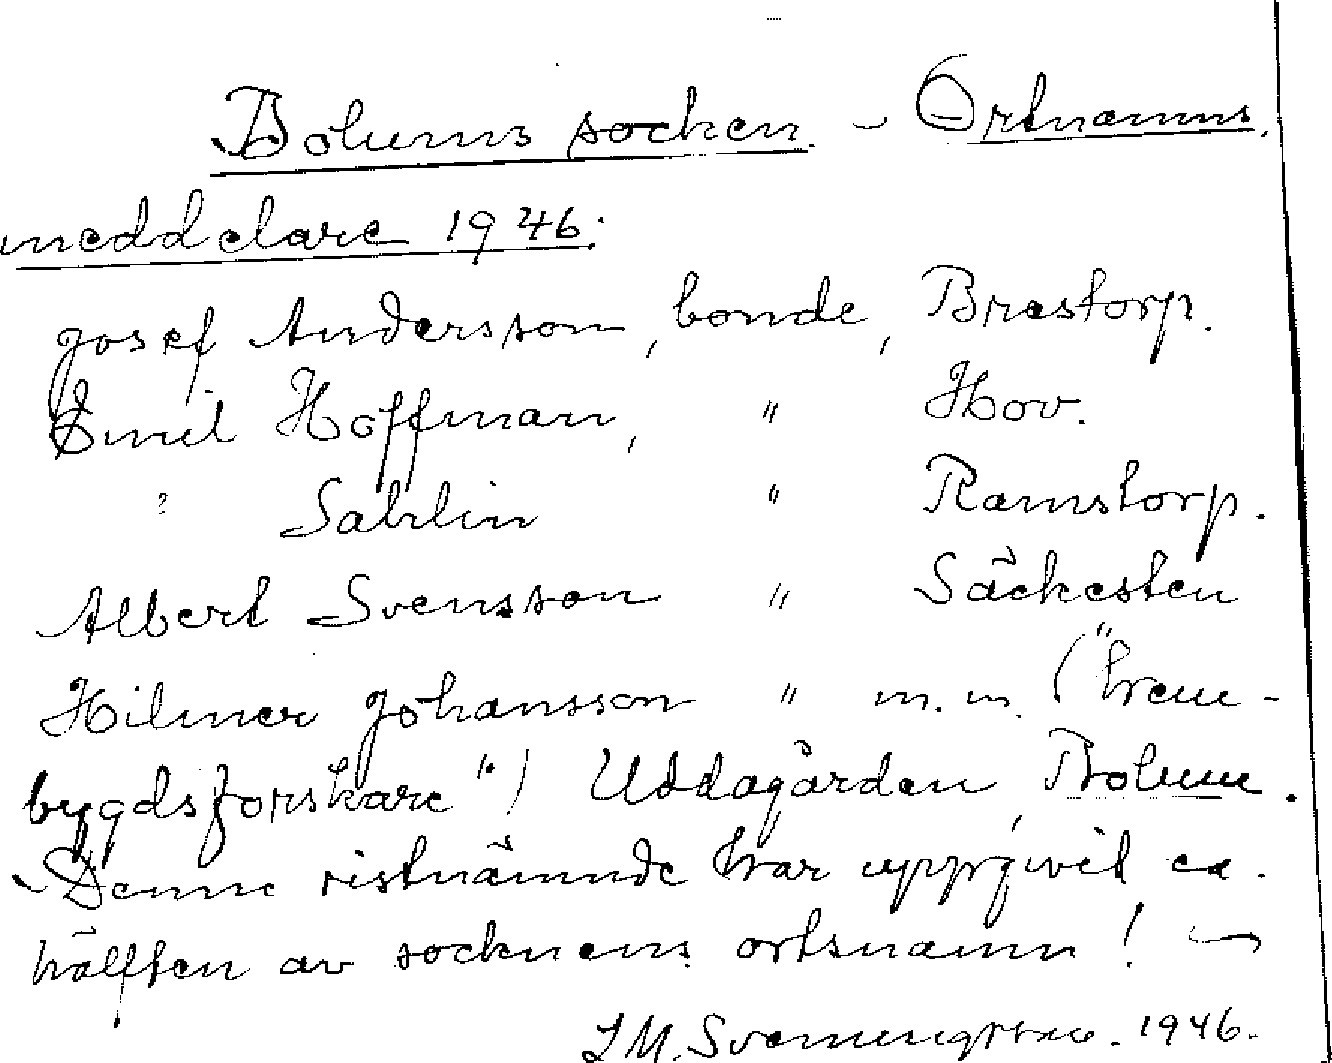 Bolums socken. - Ortnamns
meddelare 1946:
Josef Andersson, bonde, Brestorp.
Emil Hoffman, " Hov.
" Sahlin " Ramstorp.
Albert Svensson " Säckesten
Hilmer Johansson " m.m. ("hem-
bygdsforskare") Uddagården, Bolum.
- Denne sistnämnde har uppgivit ca.
hälften av socknens ortsnamn! -
1946.